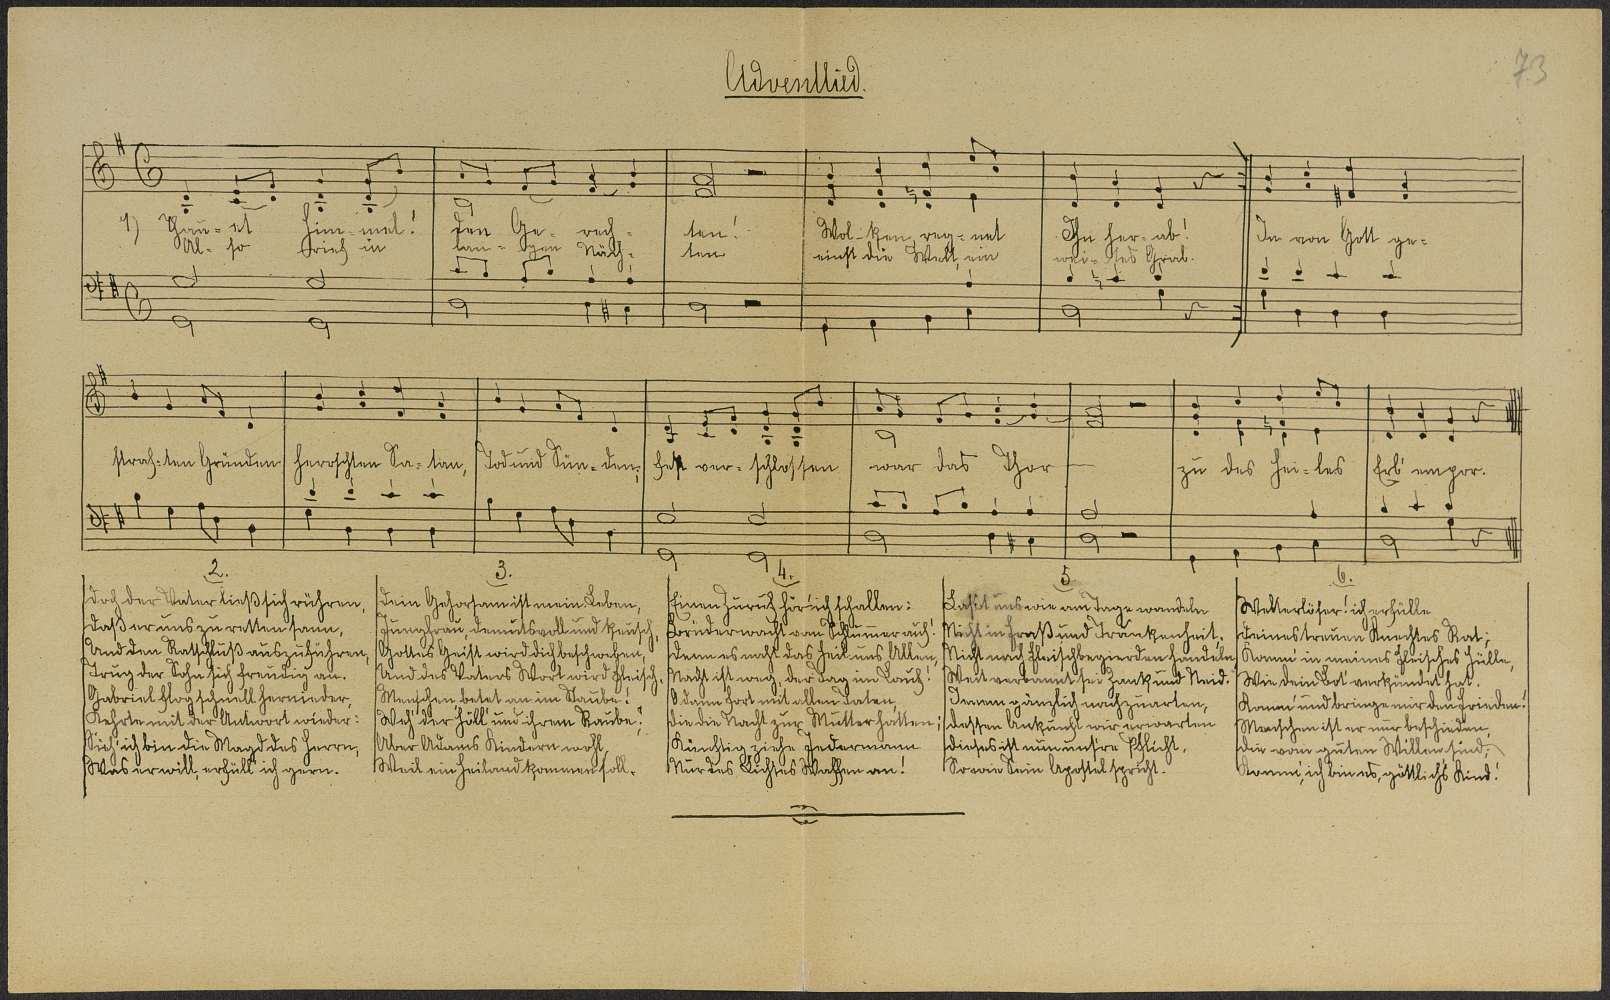 Adventlied.
73
1) Thau-et Him-mel! den Ge-rech-ten! Wol-ken, reg-net Ihn her-ab!
Al-so rief in lan-gen Näch-ten einst die Welt, ein wei-tes Grab.
In von Gott ge-
straf-ten Gründen herrschten Sa-tan, Tod und Sün-den; fest ver-schlossen war das Thor zu des Hei-les Erb' empor.
2.
Doch der Vater ließ sich rühren,
Daß er uns zu retten sann,
Und den Ratschluß auszuführen,
Trug der Sohn sich freudig an.
Gabriel flog schnell hernieder,
Kehrte mit der Antwort wieder:
Sieh' ich bin die Magd des Herrn,
Was er will, erfüll' ich gern.
3.
Dein Gehorsam ist mein Leben,
Jungfrau, demutsvoll und keusch,
Gottes Geist wird dich beschweben,
Und des Vaters Wort wird Fleisch.
Menschen betet an im Staube!
Weh' der Höll' und ihrem Raube!
Aber Adams Kindern wohl,
Weil ein Heiland kommen soll.
4.
Einen Zuruf hör' ich schallen:
Brüder wacht vom Schlummer auf!
Denn es naht das Heil uns Allen,
Nacht ist weg, der Tag im Lauf!
O dann fort mit allen Taten,
Die die Nacht zur Mutter hatten;
Künftig ziehe Jedermann
Nur des Lichtes Waffen an!
5
Laßt uns wie am Tage wandeln
Nicht in Fraß und Trunkenheit.
Nicht nach Fleischbegierden handeln,
Weit verbannt sei Zank und Neid.
Jenem gänzlich nachzuarten,
Dessen Ankunft wir erwarten
Dieses ist nun unsre Pflicht,
So wie Sein Apostel spricht.
6.
Welterlöser! ich erfülle
Deines treuen Knechtes Rat;
Komm' in meines Fleisches Hülle,
Wie dein Bot' verkündet hat.
Komm' und bringe mir den Frieden!
Menschen ist er nur beschieden,
Die vom guten Willen sind;
Komm', ich bin es, göttlich's Kind!